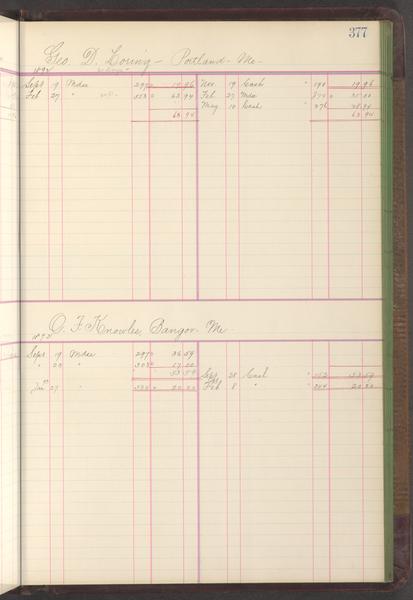 377
Geo. D. Loring - Portland - Me -
1892
Sept 19 Mdse 297 17 96 Nov. 19 Cash 190 17 96
Feb 27 " 553 63 94 Feb 27 Mdse 574 35 00
May 10 Cash 276 28 94
63 94 63 94
O. F. Knowles, Bangor - Me -
1892
Sept 19 Mdse 297 36 59
" 20 " 303 17 00
53 59 Sept 28 Cash 152 53 59
Jan 27 " 20 20 Feb 8 " 344 20 20